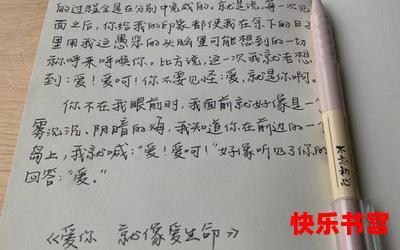 的过程全是在分别中完成的。就是说，每一次见
面之后，你给我的印象都使我在余下的日子
里用我这愚笨的头脑里可能想到的一切
称呼来呼唤你。比方说，这一次我就老想
到：爱！爱呵！你不要见怪：爱，就是你啊。
你不在我眼前时，我面前就好像是一个
雾沉沉、阴暗的海，我知道你在前边的一个
岛上，我就喊：“爱！爱呵！”好像听见了你的
回答：“爱。”
《爱你 就像爱生命》
不忘初心
快乐书宫